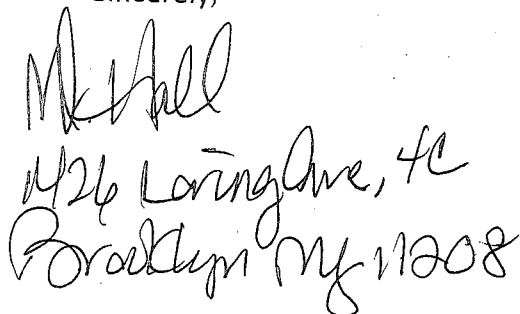 Sincerely,
Mk Hall
1426 Loring Ave, 4C
Brooklyn NY 11208